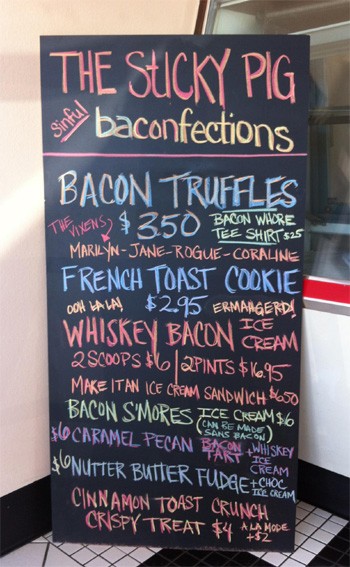 THE STICKY PIG
sinful baconfections
BACON TRUFFLES
THE VIXENS $3.50 BACON WHORE
TEE SHIRT $25
MARILYN-JANE-ROGUE-CORALINE
FRENCH TOAST COOKIE
OOH LA LA! $2.95 ERMAHGERD!
WHISKEY BACON ICE
CREAM
2 SCOOPS $6 | 2 PINTS $16.95
MAKE IT AN ICE CREAM SANDWICH $6.50
BACON S'MORES ICE CREAM $6
(CAN BE MADE
SANS BACON)
$6 CARAMEL PECAN BACON
TART + WHISKEY
ICE
CREAM
$6 NUTTER BUTTER FUDGE + CHOC
ICE CREAM
CINNAMON TOAST CRUNCH
CRISPY TREAT $4 A LA MODE
+$2